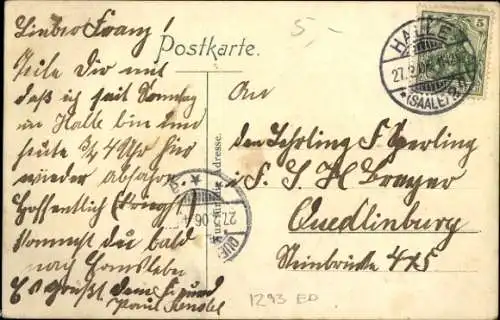 5,-
Lieber Franz!
Postkarte.
Teile Dir mit
daß ich seit Sonntag
in Halle bin und
heute 3/4 4 Uhr hier
wieder abfahre.
Hoffentlich
kommst du bald
nach
Es grüßt dein Freund
Paul
HALLE
(SAALE)
5
An
den Lehrling F. Sperling
i. F. S. H.
Quedlinburg
Steinbrücke 4/5
Nur für die Adresse.
27.2.06
QUE
1293 ED